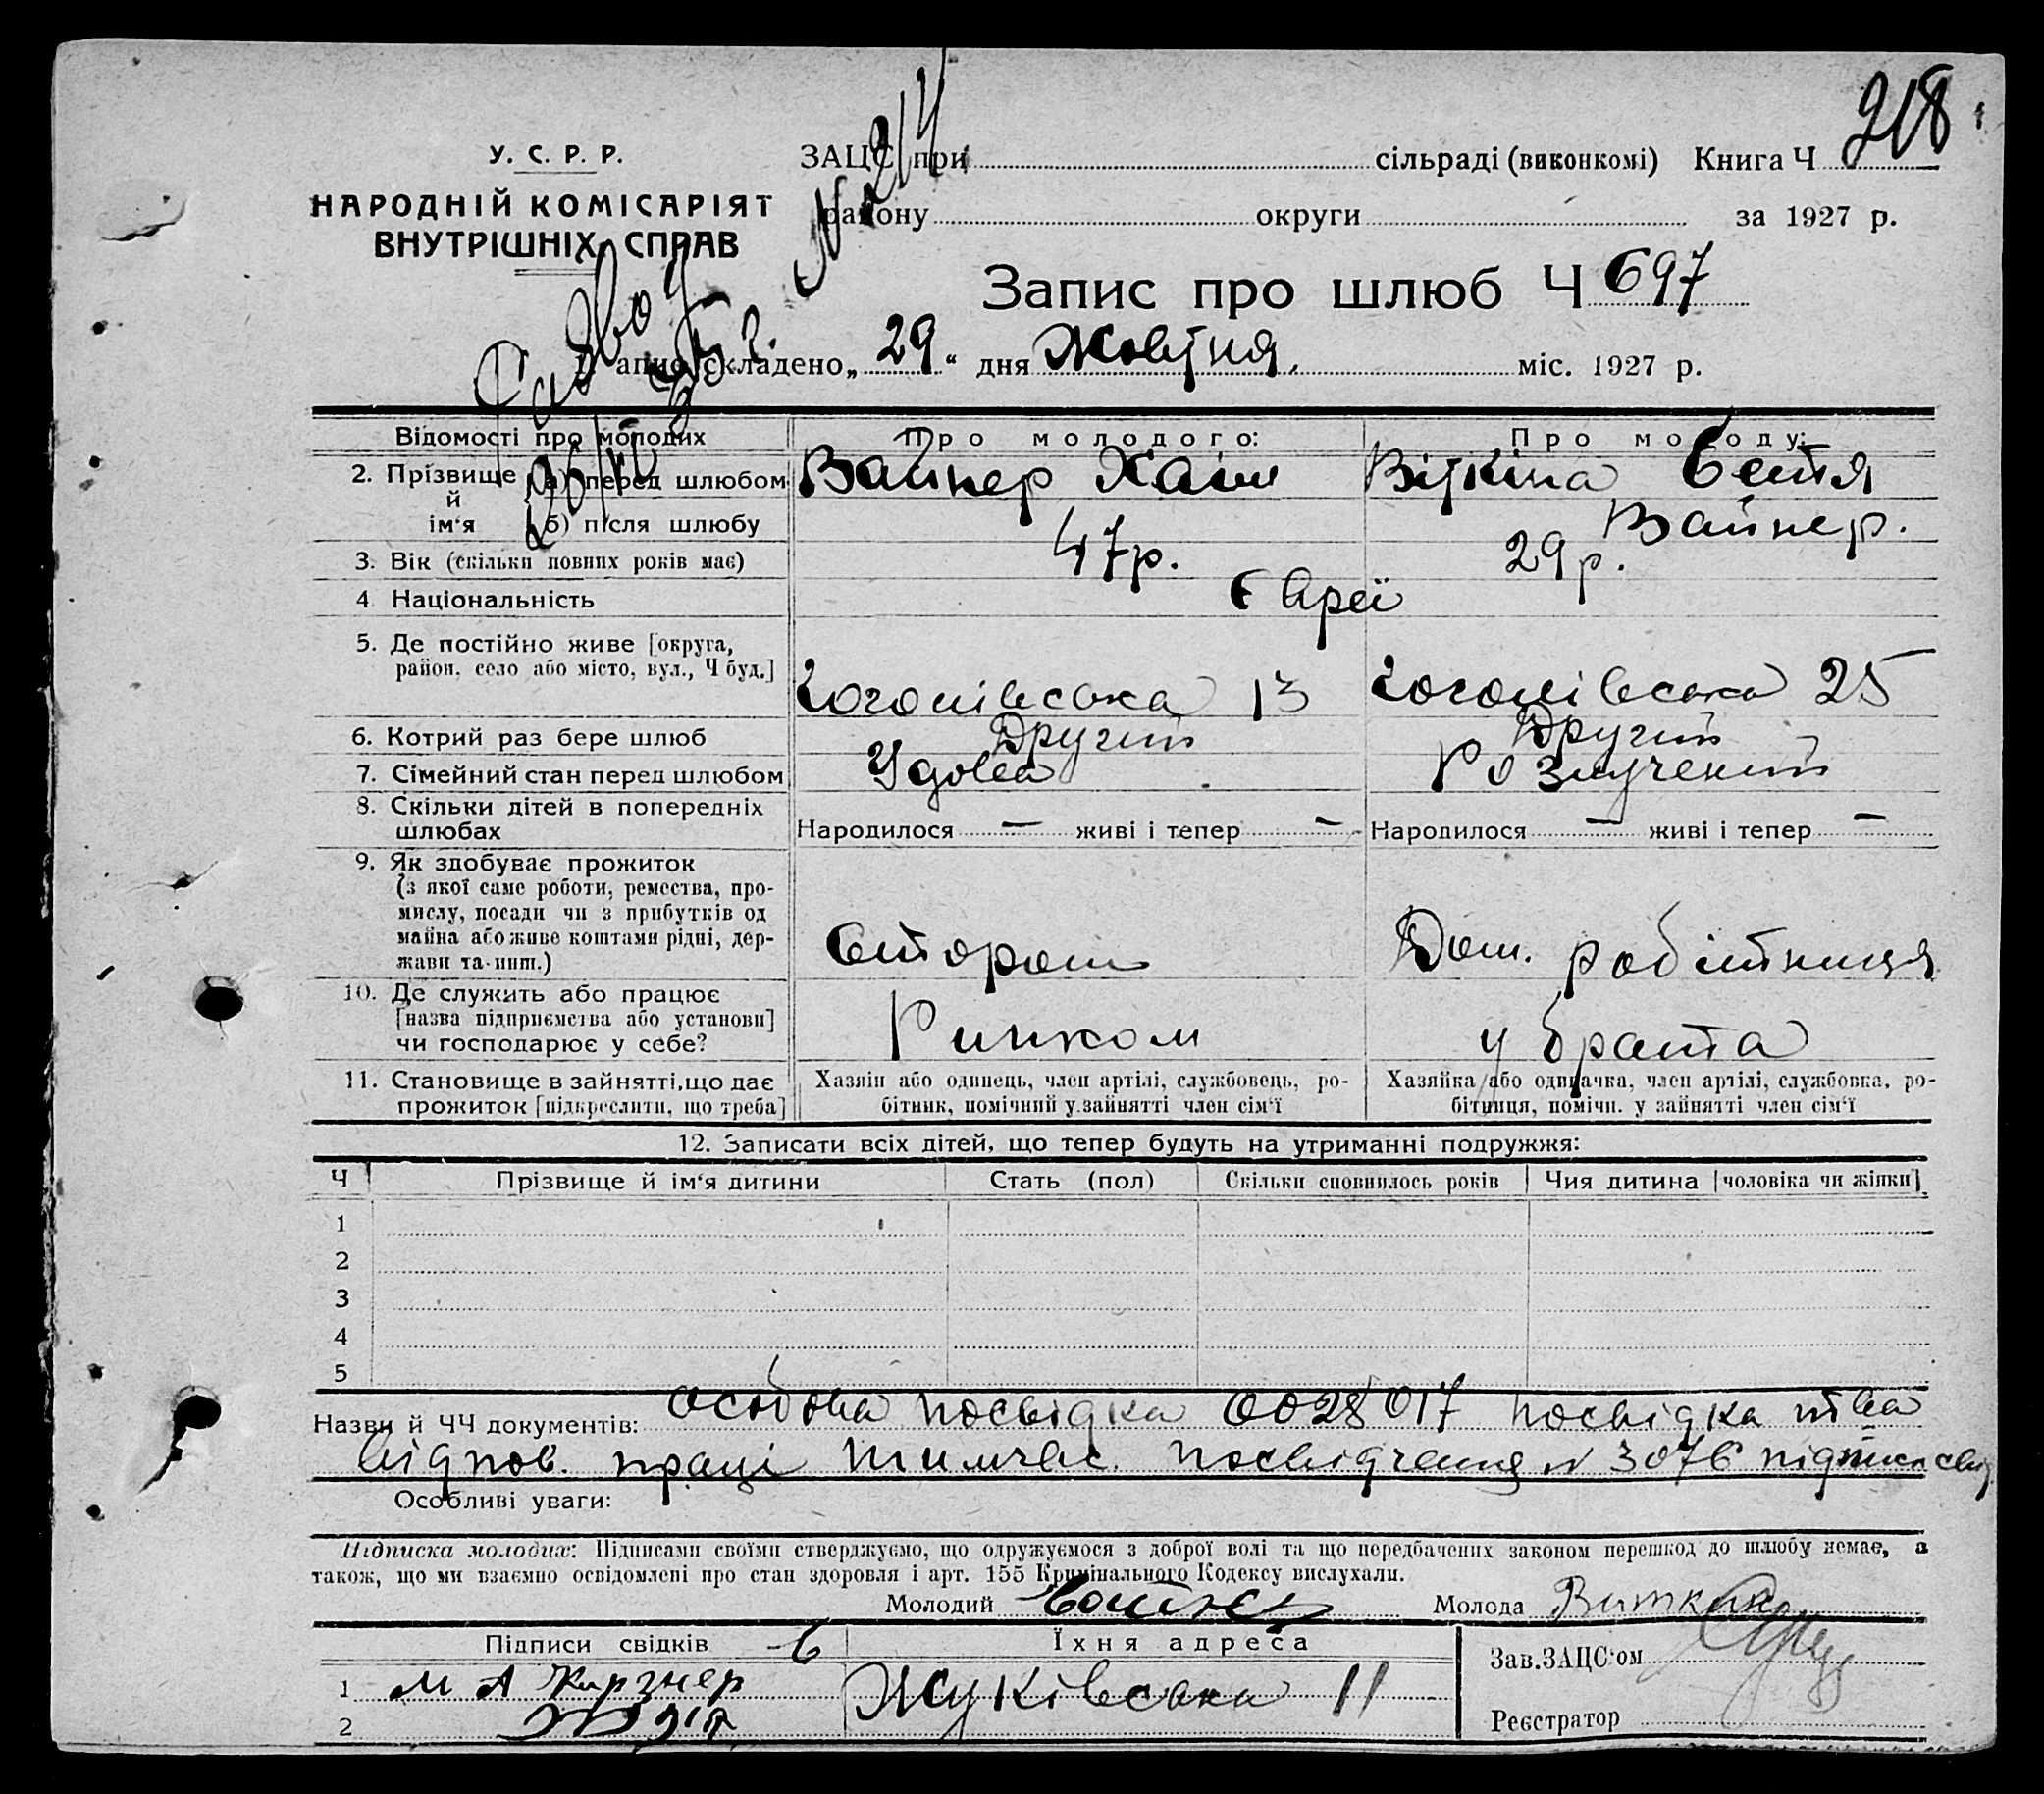 218
У. С. Р. Р.
НАРОДНІЙ КОМІСАРІЯТ
ВНУТРІШНІХ СПРАВ
ЗАЦС при сільраді (виконкомі) Книга Ч
району округи за 1927 р.
№ 214
Запис про шлюб Ч 697
1. Запис складено „29“ дня Жовтня міс. 1927 р.
Відомості про молодих Про молодого: Про молоду:
2. Прізвище й ім‘я а) перед шлюбом Вайнер Хаім Віткіна Бетя
б) після шлюбу Вайнер.
3. Вік (скільки повних років має) 47р. 29р.
4 Національність Євреї
5. Де постійно живе [округа,
район, село або місто, вул., Ч буд.] Гоголівська 13 Гоголівська 25
6. Котрий раз бере шлюб Другий Другий
7. Сімейний стан перед шлюбом Удовец Розлучений
8. Скільки дітей в попередніх
шлюбах Народилося — живі і тепер — Народилося — живі і тепер —
9. Як здобуває прожиток
(з якої саме роботи, ремества, про-
мислу, посади чи з прибутків од
майна або живе коштами рідні, дер-
жави та инш.) Сторож Дом. робітниця
10. Де служить або працює
[назва підприємства або установи]
чи господарює у себе? Ринком у брата
11. Становище в зайнятті, що дає
прожиток [підкреслити, що треба]
Хазяїн або одинець, член артілі, службовець, ро-
бітник, помічний у зайнятті член сім‘ї
Хазяйка або одиначка, член артілі, службовка, ро-
бітниця, помічн. у зайнятті член сім‘ї
12. Записати всіх дітей, що тепер будуть на утриманні подружжя:
Ч Прізвище й ім‘я дитини Стать (пол) Скільки сповнилось років Чия дитина [чоловіка чи жінки]
1
2
3
4
5
Назви й ЧЧ документів: Особова посвідка 0028017 посвідка
відпов. праці тимчас. посвідчення № 3076
Особливі уваги:
Підписка молодих: Підписами своїми стверджуємо, що одружуємося з доброї волі та що передбачених законом перешкод до шлюбу немає, а
також, що ми взаємно освідомлені про стан здоровля і арт. 155 Крімінального Кодексу вислухали.
Молодий Молода Виткина
Підписи свідків Їхня адреса
1 М А Кирзнер Жуківська 11
2
Зав.ЗАЦС‘ом
Реєстратор